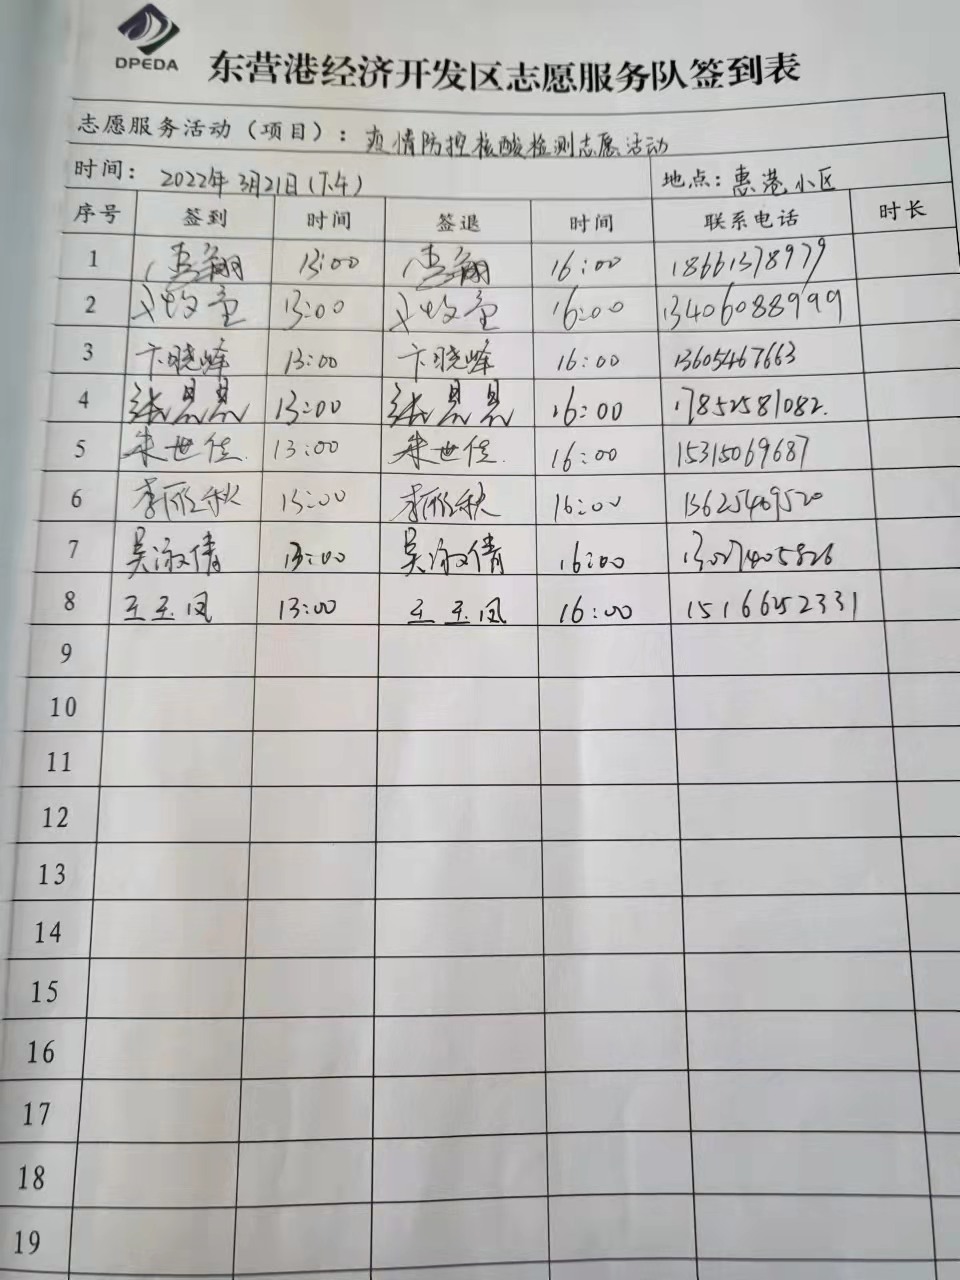 DPEDA
东营港经济开发区志愿服务队签到表
志愿服务活动（项目）：疫情防控核酸检测志愿活动
时间：2022年3月21日(下午) 地点：惠港小区
序号 签到 时间 签退 时间 联系电话 时长
1 13:00 16:00 18661378979
2 13:00 16:00 13406088999
3 卞晓峰 13:00 卞晓峰 16:00 13605467663
4 张恩恩 13:00 张恩恩 16:00 17852581082.
5 朱世佳 13:00 朱世佳 16:00 15315069687
6 李丽秋 13:00 李丽秋 16:00 13625469520
7 吴淑倩 13:00 吴淑倩 16:00 13027405826
8 王玉凤 13:00 王玉凤 16:00 15166252331
9
10
11
12
13
14
15
16
17
18
19